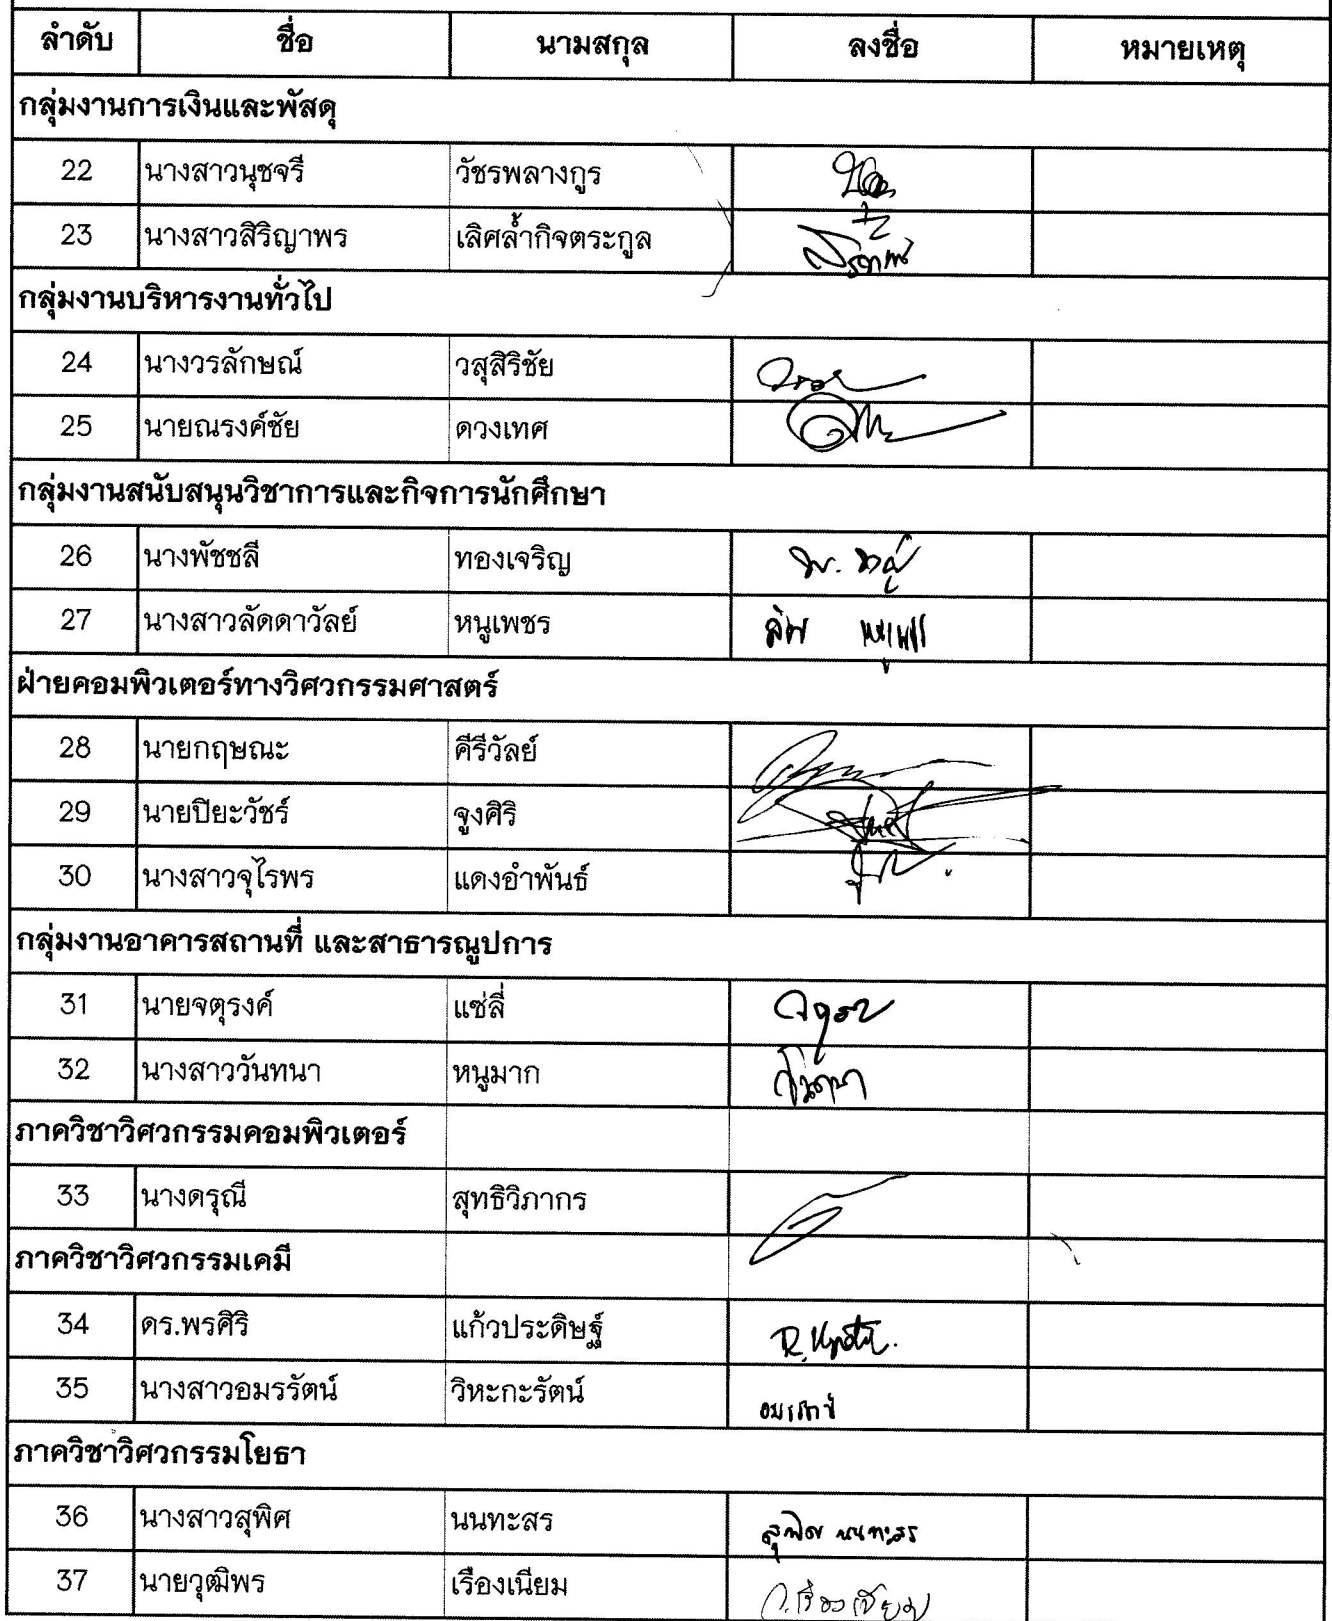 ลำดับ ชื่อ นามสกุล ลงชื่อ หมายเหตุ
กลุ่มงานการเงินและพัสดุ
22 นางสาวนุชจรี วัชรพลางกูร
23 นางสาวสิริญาพร เลิศล้ำกิจตระกูล
กลุ่มงานบริหารงานทั่วไป
24 นางวรลักษณ์ วสุสิริชัย
25 นายณรงค์ชัย ดวงเทศ
กลุ่มงานสนับสนุนวิชาการและกิจการนักศึกษา
26 นางพัชชลี ทองเจริญ
27 นางสาวลัดดาวัลย์ หนูเพชร
ฝ่ายคอมพิวเตอร์ทางวิศวกรรมศาสตร์
28 นายกฤษณะ คีรีวัลย์
29 นายปิยะวัชร์ จูงศิริ
30 นางสาวจุไรพร แดงอำพันธ์
กลุ่มงานอาคารสถานที่ และสาธารณูปการ
31 นายจตุรงค์ แซ่ลี่
32 นางสาววันทนา หนูมาก
ภาควิชาวิศวกรรมคอมพิวเตอร์
33 นางดรุณี สุทธิวิภากร
ภาควิชาวิศวกรรมเคมี
34 ดร.พรศิริ แก้วประดิษฐ์
35 นางสาวอมรรัตน์ วิหะกะรัตน์ อมรรัตน์
ภาควิชาวิศวกรรมโยธา
36 นางสาวสุพิศ นนทะสร สุพิศ นนทะสร
37 นายวุฒิพร เรืองเนียม ว.เรืองเนียม